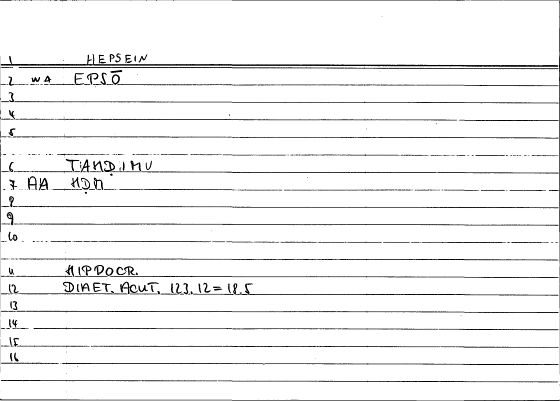 1 HEPSEIN
2 WA EPSŌ
3
4
5
6 ṬAḤD.IMU
7 AA ḤḌN
8
9
10
11 HIPPOCR.
12 DIAET. ACUT. 123,12 = 18.5
13
14
15
16